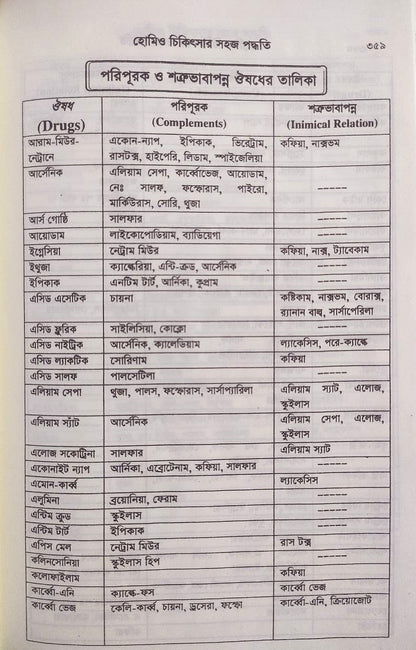 হোমিও চিকিৎসার সহজ পদ্ধতি ৩৫৯
পরিপূরক ও শত্রুভাবাপন্ন ঔষধের তালিকা
ঔষধ পরিপূরক শত্রুভাবাপন্ন
(Drugs) (Complements) (Inimical Relation)
আরাম-মিউর- একোন-ন্যাপ, ইপিকাক, ভিরেট্রাম, কফিয়া, নাক্সভম
নেট্রানে রাসটক্স, হাইপেরি, লিডাম, স্পাইজেলিয়া
আর্সেনিক এলিয়াম সেপা, কার্ব্বোভেজ, আয়োডাম,
নেঃ সালফ, ফস্ফোরাস, পাইরো, -----
মার্কিউরাস, সোরি, থুজা
আর্স গোষ্ঠি সালফার -----
আয়োডাম লাইকোপোডিয়াম, ব্যাডিয়েগা -----
ইগ্নেসিয়া নেট্রাম মিউর কফিয়া, নাক্স, ট্যাবেকাম
ইথুজা ক্যাল্কেরিয়া, এন্টি-ক্রড, আর্সেনিক -----
ইপিকাক এনটিম টার্ট, আর্নিকা, কুপ্রাম -----
এসিড এসেটিক চায়না কষ্টিকাম, নাক্সভম, বোরাক্স,
র‍্যানান বাল্ব, সার্সাপেরিলা
এসিড ফ্লুরিক সাইলিসিয়া, কোক্লো -----
এসিড নাইট্রিক আর্সেনিক, ক্যালেডিয়াম ল্যাকেসিস, পরে-ক্যাল্কে
এসিড ল্যাকটিক সোরিণাম কফিয়া
এসিড সালফ পালসেটিলা -----
এলিয়াম সেপা থুজা, পালস, ফস্ফোরাস, সার্সাপ্যারিলা এলিয়াম স্যাট, এলোজ,
স্কুইলাস
এলিয়াম স্যাট আর্সেনিক এলিয়াম সেপা, এলোজ,
স্কুইলাস
এলোজ সকোট্রিনা সালফার এলিয়াম স্যাট
একোনাইট ন্যাপ আর্নিকা, এব্রোটেনাম, কফিয়া, সালফার -----
এমোন-কার্ব্ব ল্যাকেসিস
এলুমিনা ব্রয়োনিয়া, ফেরাম -----
এন্টিম ক্রুড স্কুইলাস -----
এন্টিম টার্ট ইপিকাক -----
এপিস মেল নেট্রাম মিউর রাস টক্স
কলিনসোনিয়া স্কুইলাস হিপ -----
কলোফাইলাম কফিয়া
কার্ব্বো-এনি ক্যাল্কে-ফস কার্ব্বো ভেজ
কার্ব্বো ভেজ কেলি-কার্ব্ব, চায়না, ড্রসেরা, ফস্ফো কার্ব্বো-এনি, ক্রিয়োজোট